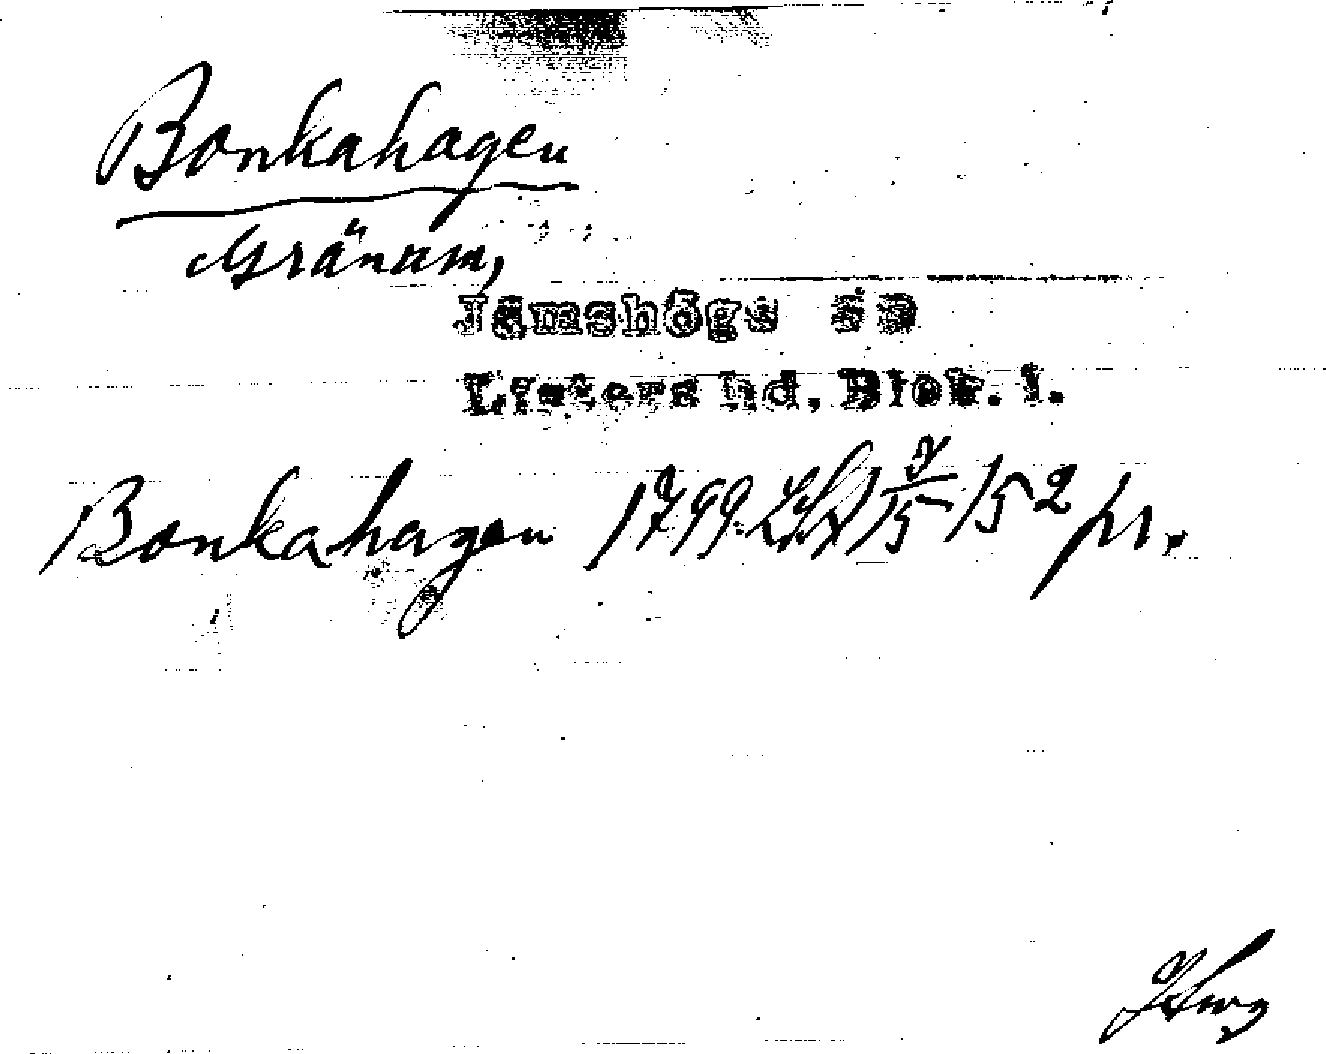 Bonkahagen
Gränum,
Jämshögs sn
Listers hd. Blek. l.
Bonkahagen 1799 15/2 pr.